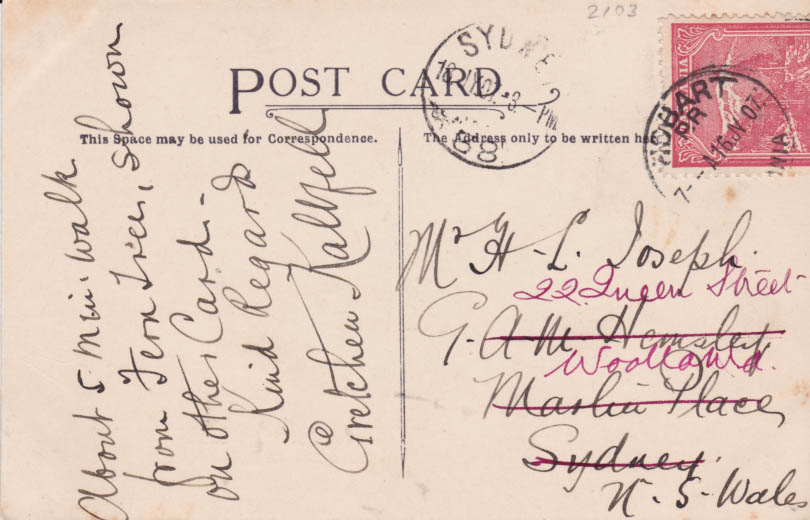 2103
POST CARD
This Space may be used for Correspondence.
The Address only to be written he
SYDNE
PM
88
HOBART
16 JY 07
About 5 min: walk
from Fern Tree, shown
on other Card. -
Kind Regards
Gretchen Kalbfell
Mr H. L. Joseph.
22 Queen Street
G. A. M. Hemsley
Woollahra.
Martin Place,
Sydney.
N. S. Wales